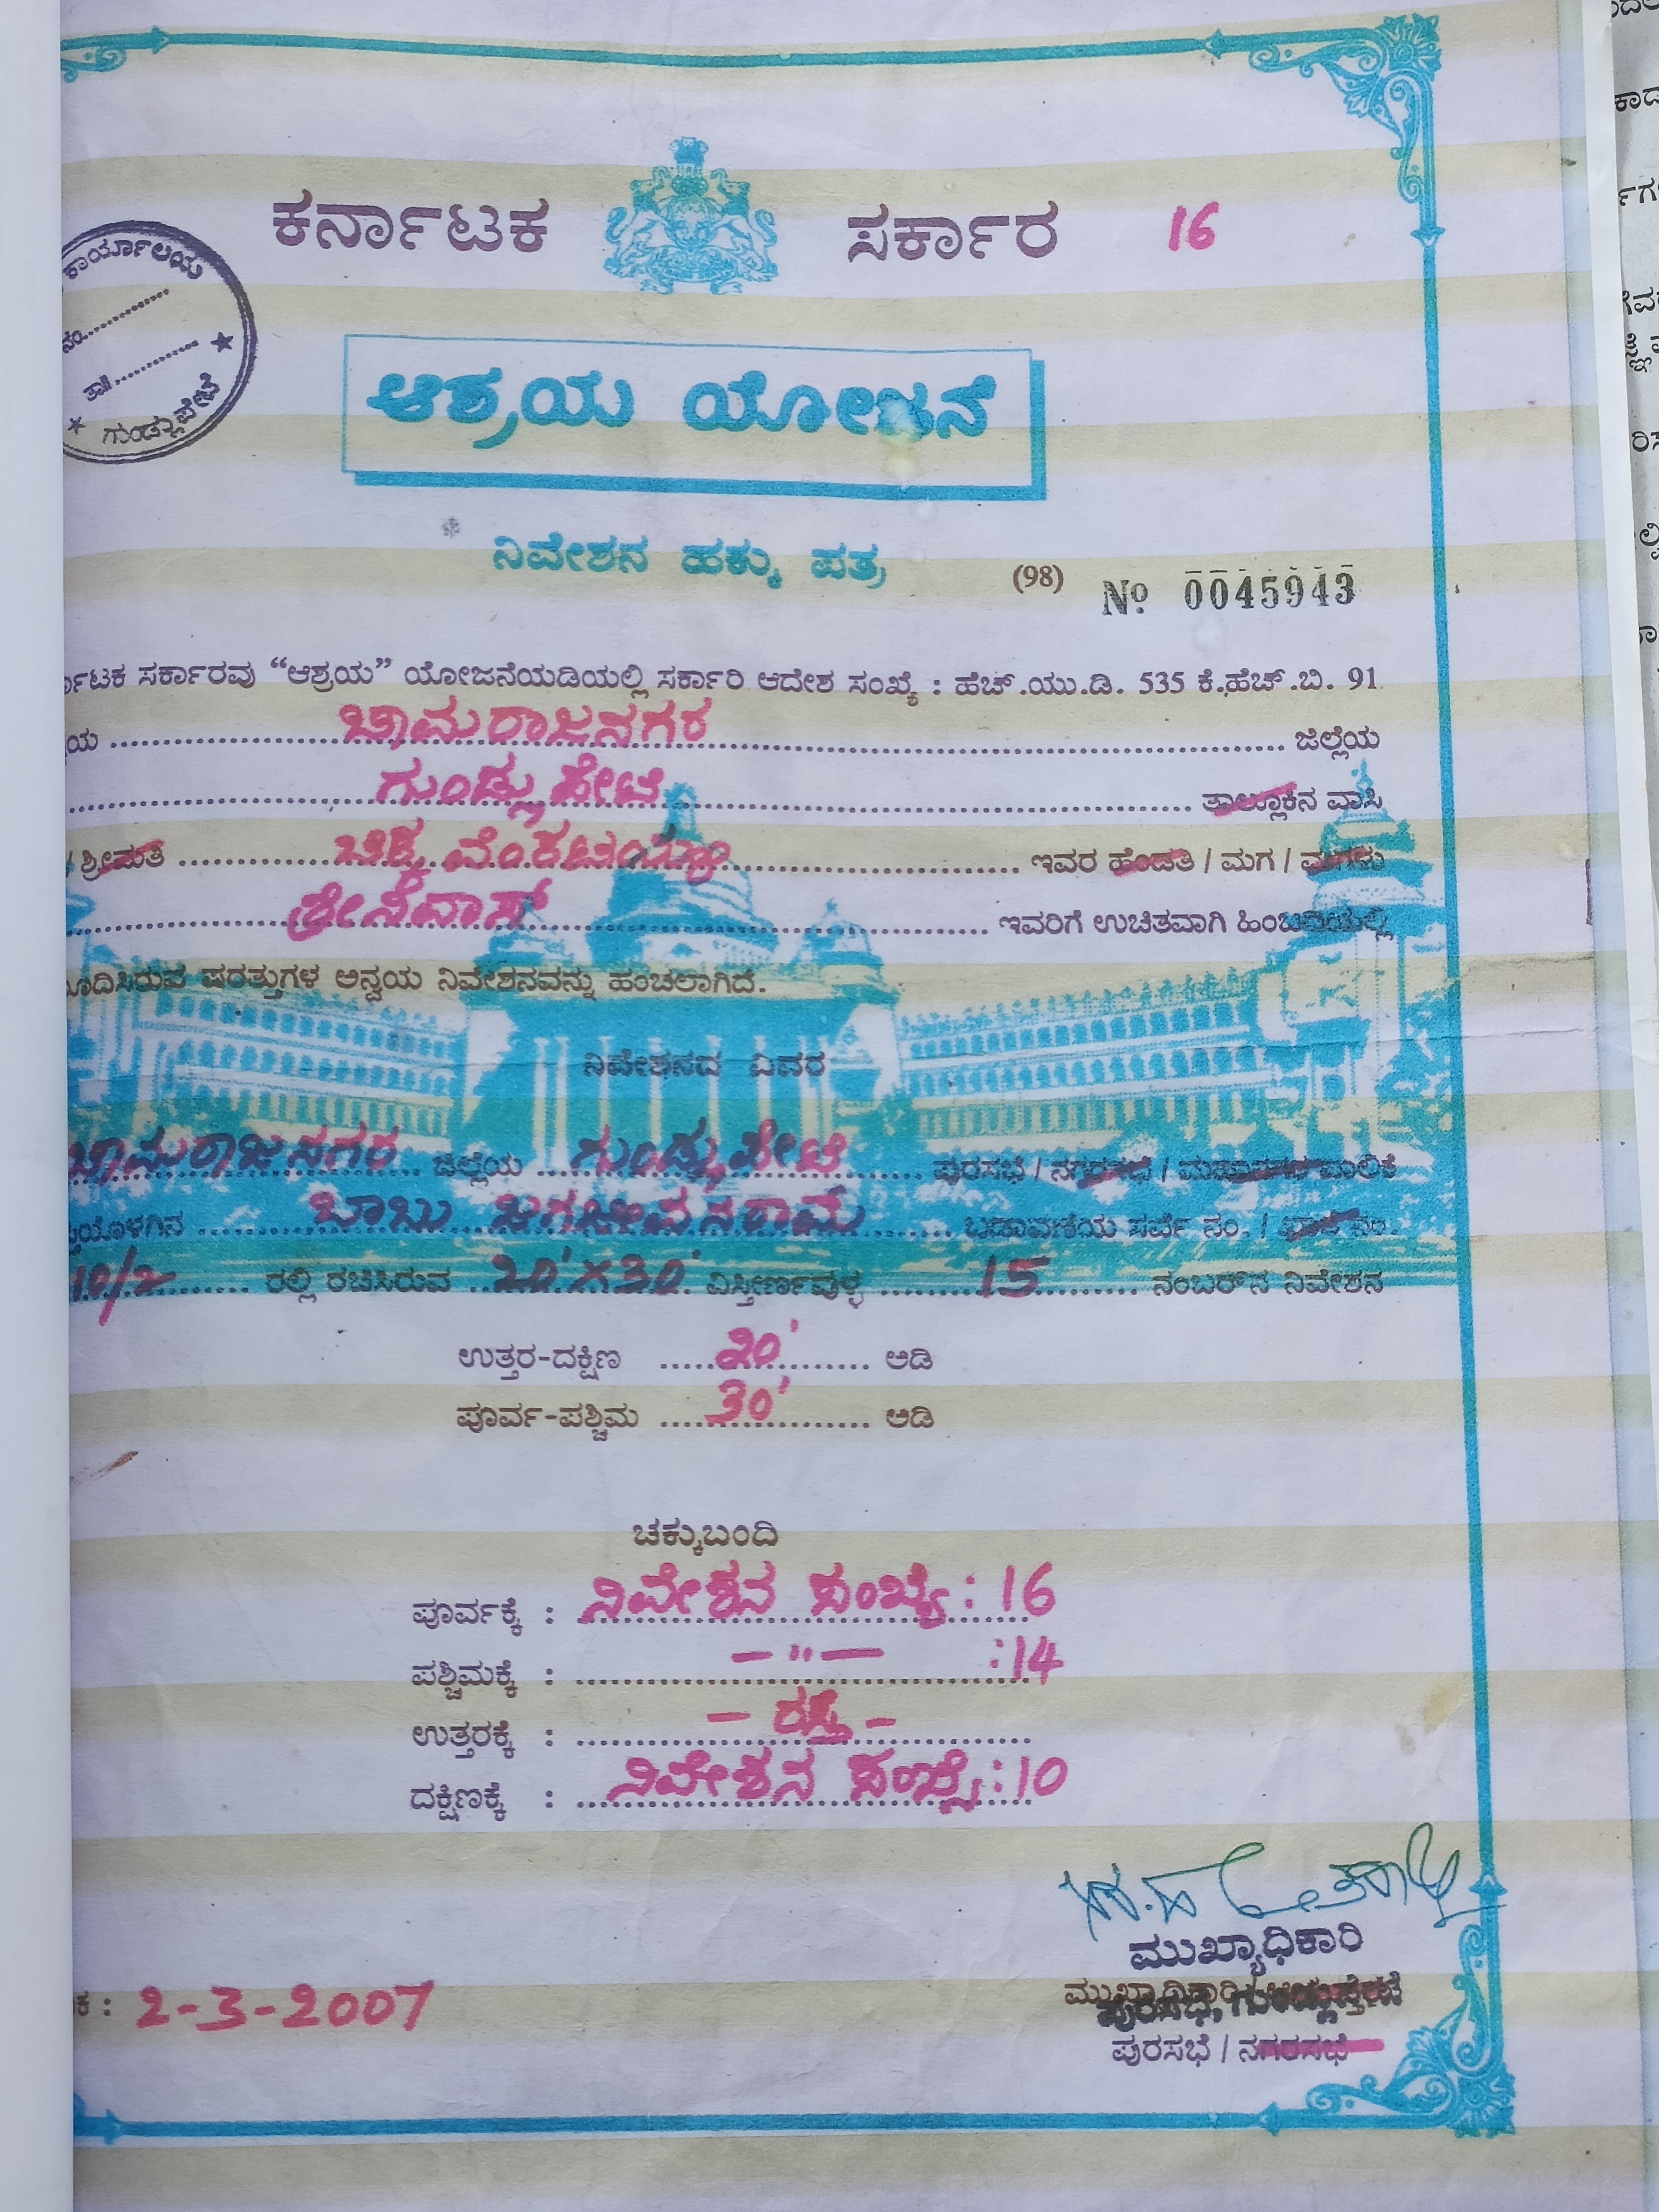 ಕರ್ನಾಟಕ ಸರ್ಕಾರ 16
ಕಾರ್ಯಾಲಯ
ನಂ..........
ತಾ||..........
ಗುಂಡ್ಲುಪೇಟೆ
ಆಶ್ರಯ ಯೋಜನೆ
ನಿವೇಶನ ಹಕ್ಕು ಪತ್ರ (98) Nº 0045943
ರ್ನಾಟಕ ಸರ್ಕಾರವು “ಆಶ್ರಯ” ಯೋಜನೆಯಡಿಯಲ್ಲಿ ಸರ್ಕಾರಿ ಆದೇಶ ಸಂಖ್ಯೆ : ಹೆಚ್.ಯು.ಡಿ. 535 ಕೆ.ಹೆಚ್.ಬಿ. 91
ಯ ಚಾಮರಾಜನಗರ ಜಿಲ್ಲೆಯ
ಗುಂಡ್ಲುಪೇಟೆ ತಾಲ್ಲೂಕಿನ ವಾಸಿ
/ ಶ್ರೀಮತಿ ಚಿಕ್ಕವೆಂಕಟಯ್ಯ ಇವರ ಹೆಂಡತಿ / ಮಗ / ಮಗಳು
ಶ್ರೀನಿವಾಸ್ ಇವರಿಗೆ ಉಚಿತವಾಗಿ ಹಿಂಬದಿಯಲ್ಲಿ
ೂದಿಸಿರುವ ಷರತ್ತುಗಳ ಅನ್ವಯ ನಿವೇಶನವನ್ನು ಹಂಚಲಾಗಿದೆ.
ನಿವೇಶನದ ವಿವರ
ಚಾಮರಾಜನಗರ ಜಿಲ್ಲೆಯ ಗುಂಡ್ಲುಪೇಟೆ ಪುರಸಭೆ / ನಗರಸಭೆ / ಮಹಾನಗರ ಪಾಲಿಕೆ
ಯೊಳಗಿನ ಬಾಬು ಜಗಜೀವನರಾಮ್ ಬಡಾವಣೆಯ ಸರ್ವೆ ನಂ. / ಖಾತೆ ನಂ.
10/2 ರಲ್ಲಿ ರಚಿಸಿರುವ 20'×30' ವಿಸ್ತೀರ್ಣವುಳ್ಳ 15 ನಂಬರ್‌ನ ನಿವೇಶನ
ಉತ್ತರ-ದಕ್ಷಿಣ 20' ಅಡಿ
ಪೂರ್ವ-ಪಶ್ಚಿಮ 30' ಅಡಿ
ಚಕ್ಕುಬಂದಿ
ಪೂರ್ವಕ್ಕೆ : ನಿವೇಶನ ಸಂಖ್ಯೆ : 16
ಪಶ್ಚಿಮಕ್ಕೆ : — " — : 14
ಉತ್ತರಕ್ಕೆ : — ರಸ್ತೆ —
ದಕ್ಷಿಣಕ್ಕೆ : ನಿವೇಶನ ಸಂಖ್ಯೆ : 10
ಮುಖ್ಯಾಧಿಕಾರಿ
ಮುಖ್ಯಾಧಿಕಾರಿ /
ಪುರಸಭೆ, ಗುಂಡ್ಲುಪೇಟೆ
ಕ : 2-3-2007
ಪುರಸಭೆ / ನಗರಸಭೆ